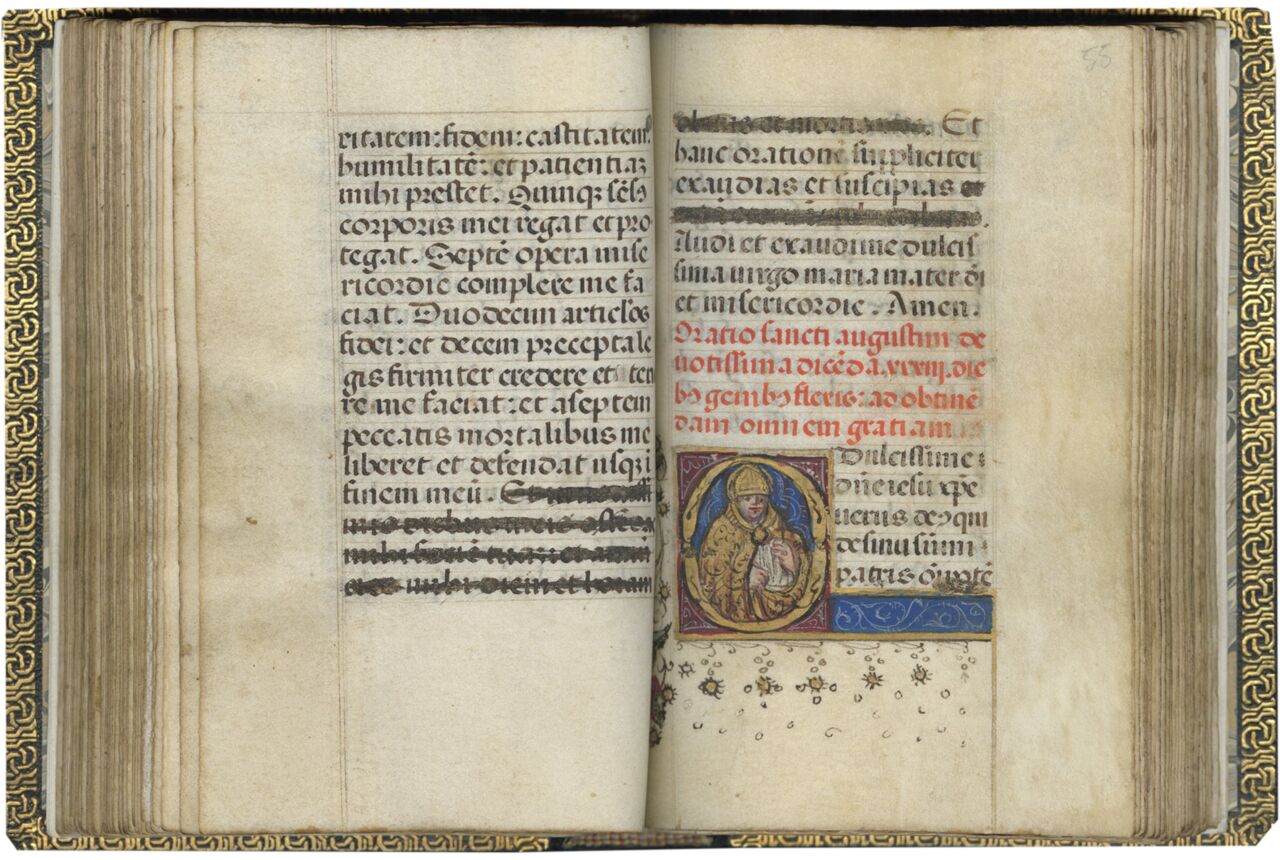 ritatem: fidem: castitatem:
humilitatē: et patientiaꝫ
mihi prestet. Quinqꝫ sēsꝰ
corporis mei regat et pro
tegat. Septē opera mise
ricordie complere me fa
ciat. Duodecim articlos
fidei: et decem precepta le
gis firmiter credere et te
re me faciat: et a septem
peccatis mortalibus me
liberet et defendat usqꝫ i
finem meū. Et
mihi
mihi diem et horam
obitus et mortis. Et
hanc orationē suppliciter
exaudias et suscipias et
Audi et exaudi me dulcis
sima uirgo maria mater d̄i
et misericordie. Amen.
Oratio sancti augustini de
uotissima dicēda .xxxiij. die
bꝰ genibꝰ flexis: ad obtinē
dam omnem gratiam
O Dulcissime
dn̄e iesu xp̄e
uerus deꝰ qui
de sinu sūmi
patris om̄ipotē
55